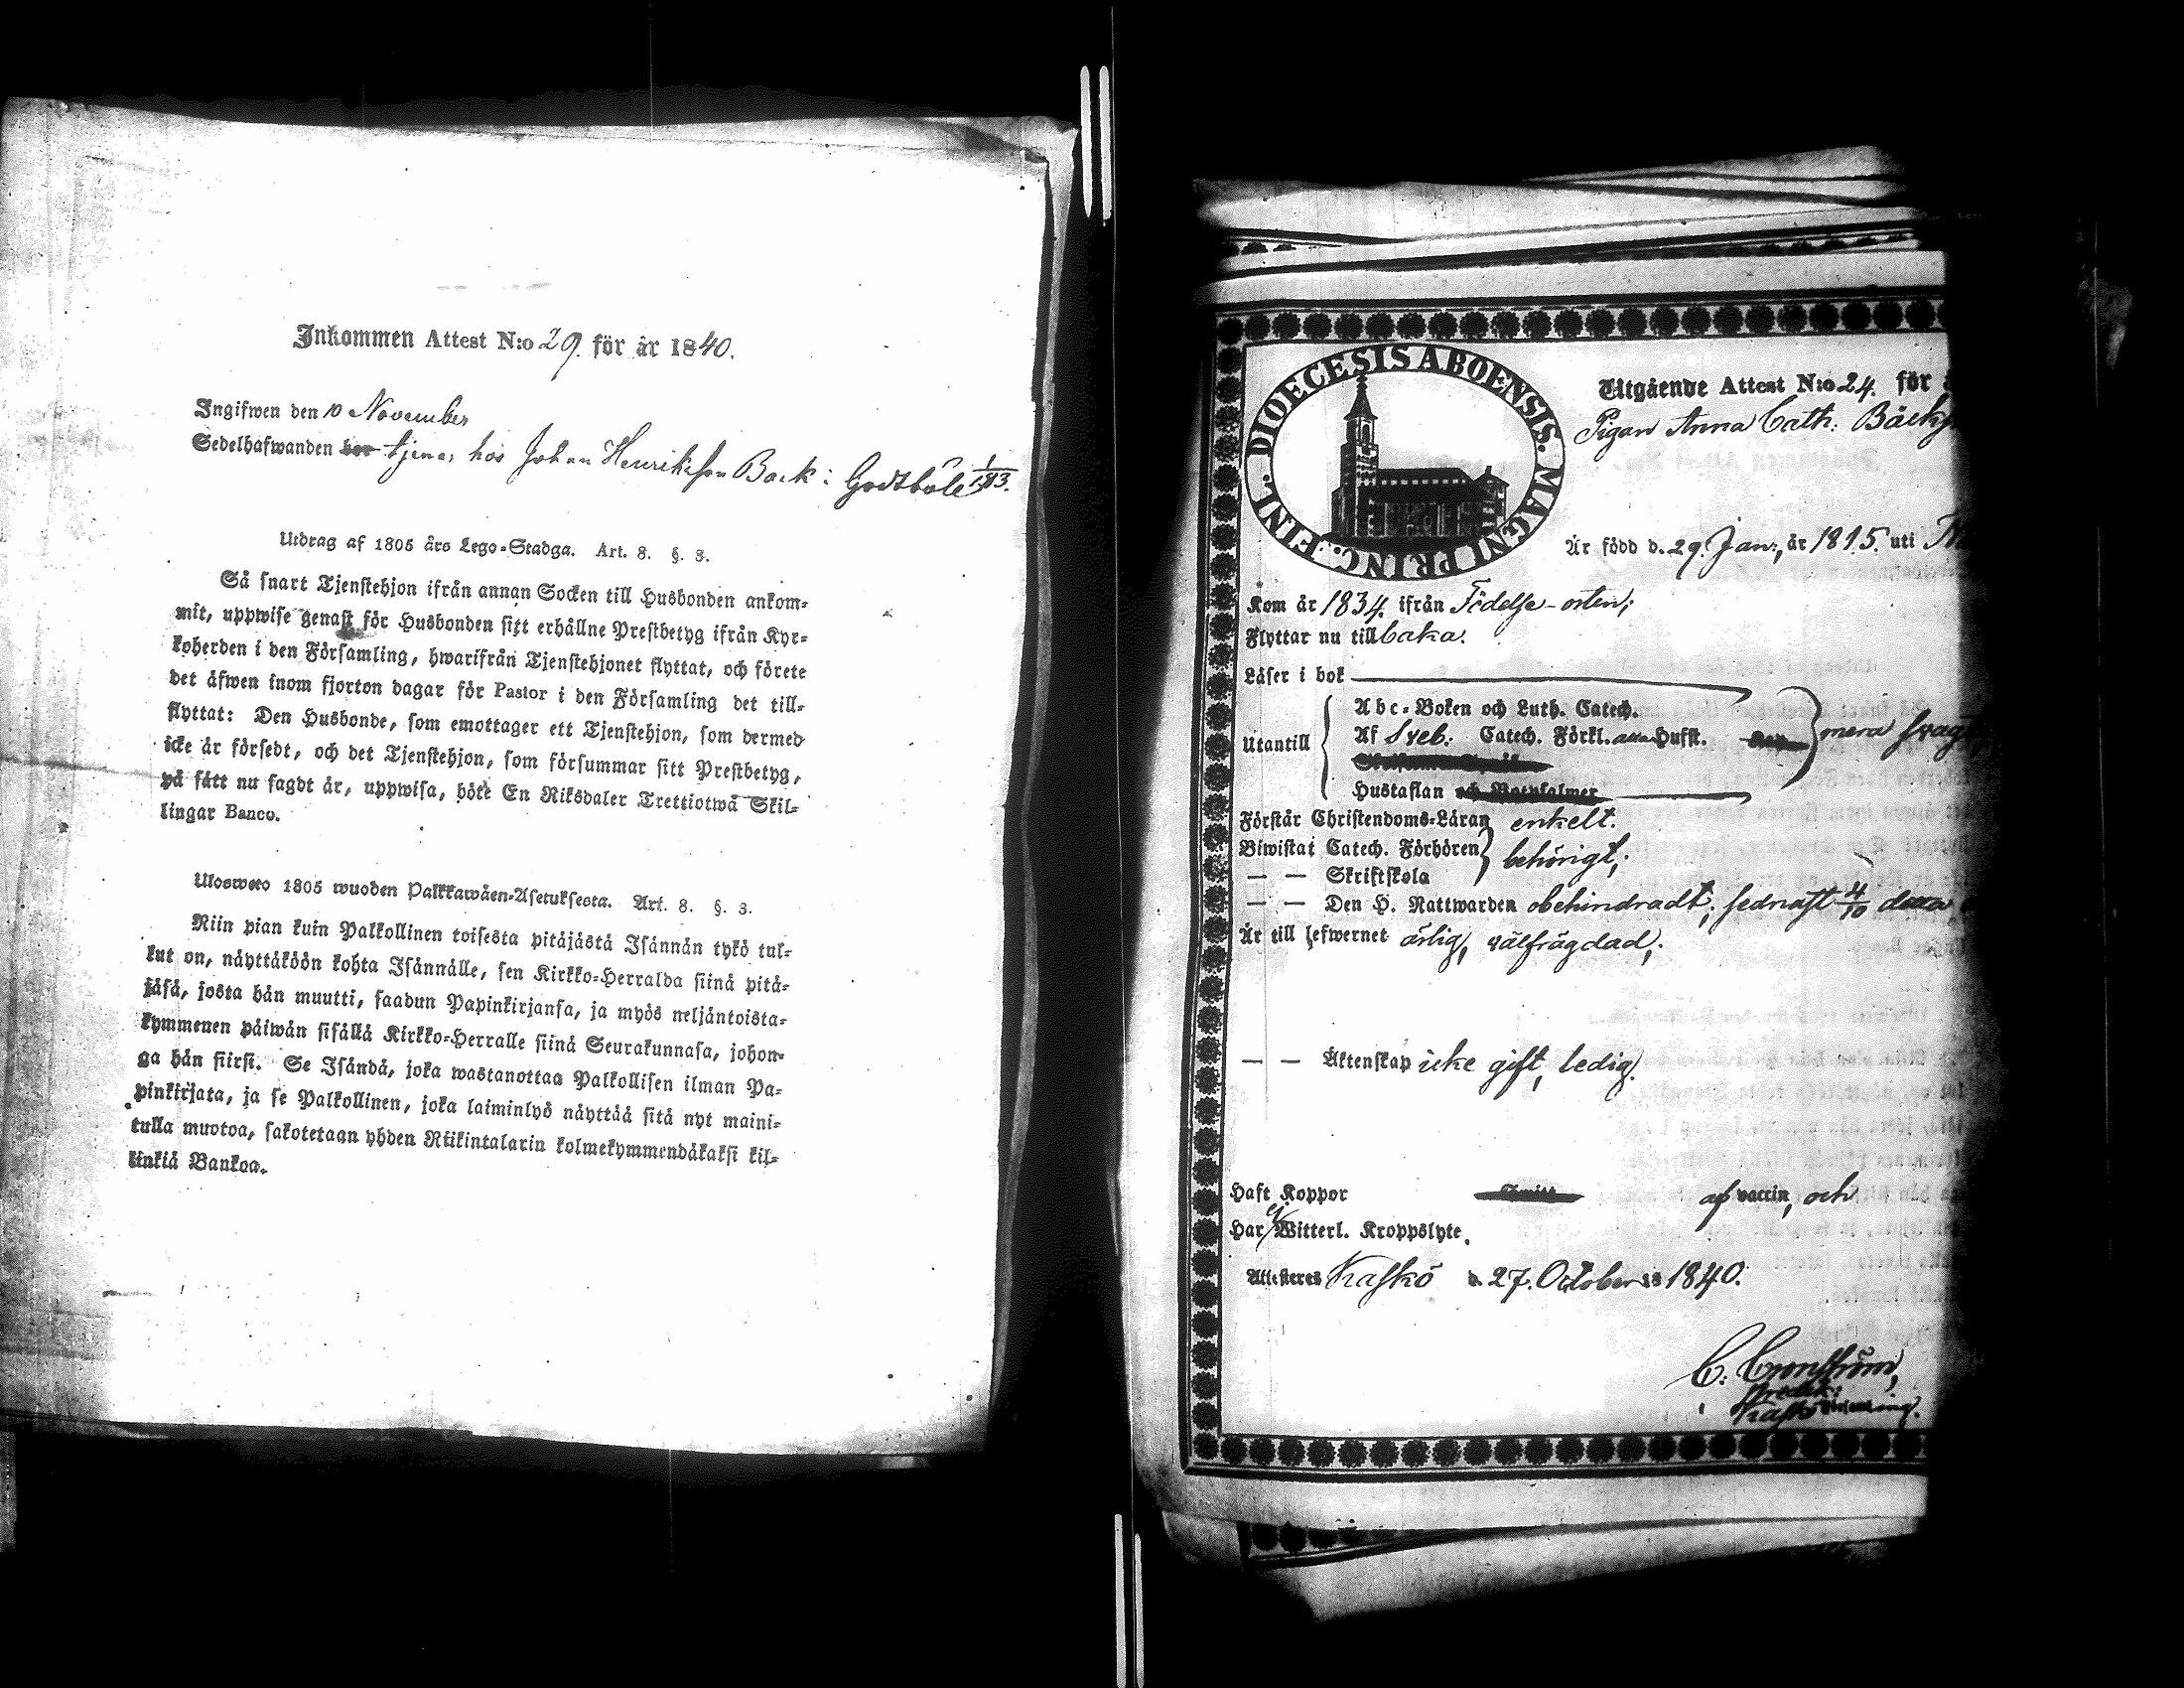 Inkommen Attest N:o 29. för år 1840.
Ingifwen den 10 November
Sedelhafwanden bor tjenar hos Johan Henriksson Back i Gottböle
Utdrag af 1805 års Lego-Stadga. Art. 8. §. 3.
Så snart Tjenstehjon ifrån annan Socken till Husbonden ankom-
mit, uppwise genast för Husbonden sitt erhållne Prestbetyg ifrån Kyr-
koherden i den Församling, hwarifrån Tjenstehjonet flyttat, och förete
det äfwen inom fjorton dagar för Pastor i den Församling det till-
flyttat: Den Husbonde, som emottager ett Tjenstehjon, som dermed
icke är försedt, och det Tjenstehjon, som försummar sitt Prestbetyg,
på sätt nu sagdt är, uppwisa, böte En Riksdaler Trettiotwå Skil-
lingar Banco.
Uloswето 1805 wuoden Palkkawäen-Asetuksesta. Art. 8. §. 3.
Niin pian kuin Palkollinen toisesta pitäjästä Isännän tykö tul-
lut on, näyttäköön kohta Isännälle, sen Kirkko-Herralda siinä pitä-
jäsä, josta hän muutti, saadun Papinkirjansa, ja myös neljäntoista-
kymmenen päiwän sisällä Kirkko-Herralle siinä Seurakunnasa, johon-
ga hän siirsi. Se Isändä, joka wastanottaa Palkollisen ilman Pa-
pinkirjata, ja se Palkollinen, joka laiminlyö näyttää sitä nyt maini-
tulla muotoa, sakotetaan yhden Riikintalarin kolmekymmendäkaksi kil-
linkiä Bankoa.
DIOECESIS ABOENSIS. MAGNI PRINC. FINL.
Utgående Attest N:o 24. för
Pigan Anna Cath:
Är född d. 29. Jan:, år 1815. uti
Kom år 1834. ifrån Födelse-orten;
Flyttar nu tillbaka.
Läser i bok
Utantill
Abc-Boken och Luth. Catech.
Af Sveb. Catech. Förkl. Hufst. mera
Hustaflan och Botpsalmer
Förstår Christendoms-Läran enkelt.
Biwistat Catech. Förhören behörigt;
— — Skriftskola
— — Den H. Nattwarden obehindradt; sednast 4/10 detta
Är till lefwernet ärlig, välfrägdad,
— — Äktenskap icke gift, ledig.
Haft Koppor af vaccin, och
Har ej Witterl. Kroppslyte.
Attesteras Kaskö d. 27. October 1840.
C: Cronström,
Predik:
Kaskö